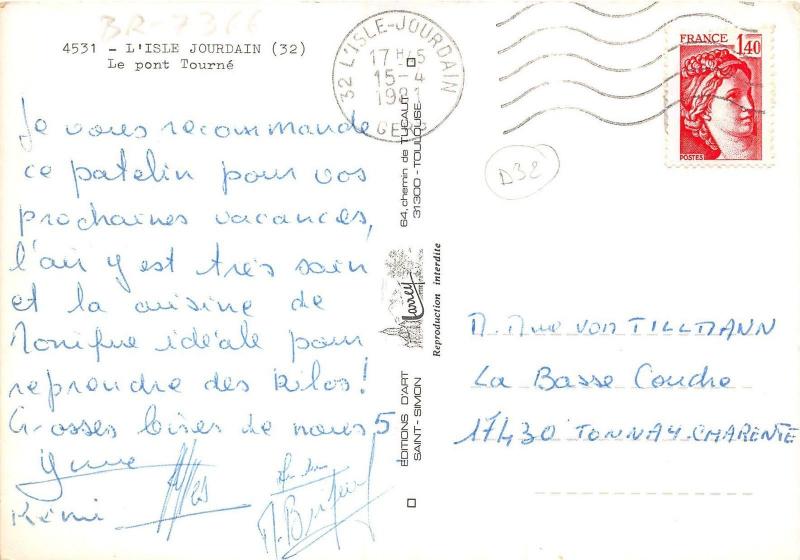 BR-7366
4531 - L'ISLE JOURDAIN (32)
Le pont Tourné
Je vous recommande
ce patelin pour vos
prochaines vacances,
l'air y est très sain
et la cuisine de
Monique idéale pour
reprendre des kilos!
Grosses bises de nous 5
Yvne
Rémi
32 L'ISLE-JOURDAIN
17 H 45
15-4
1981
GERS
64, chemin de TUCAUT
31300 - TOULOUSE
Larrey
Reproduction interdite
ÉDITIONS D'ART
SAINT-SIMON
FRANCE
1,40
POSTES
D32
M. Mme von TILLMANN
La Basse Coudre
17430 TONNAY-CHARENTE